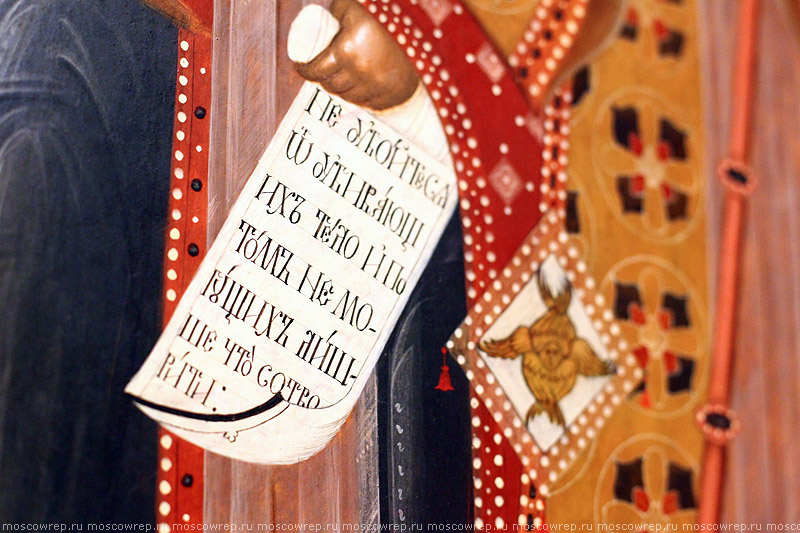 НЕ ᲂУ҆БО́ЙТЕСѦ
Ѿ ᲂУ҆БИВА́ЮЩ
ИХЪ ТѢ́ЛО И҆ ПО
ТО́МЪ НЕ МО-
ГꙊ́ЩИХЪ ЛИ́Ш-
ШЕ ЧТО̀ СОТВО
РИ́ТИ:
moscowrep.ru moscowrep.ru moscowrep.ru moscowrep.ru moscowrep.ru moscowrep.ru moscowrep.ru moscowrep.ru moscowrep.ru